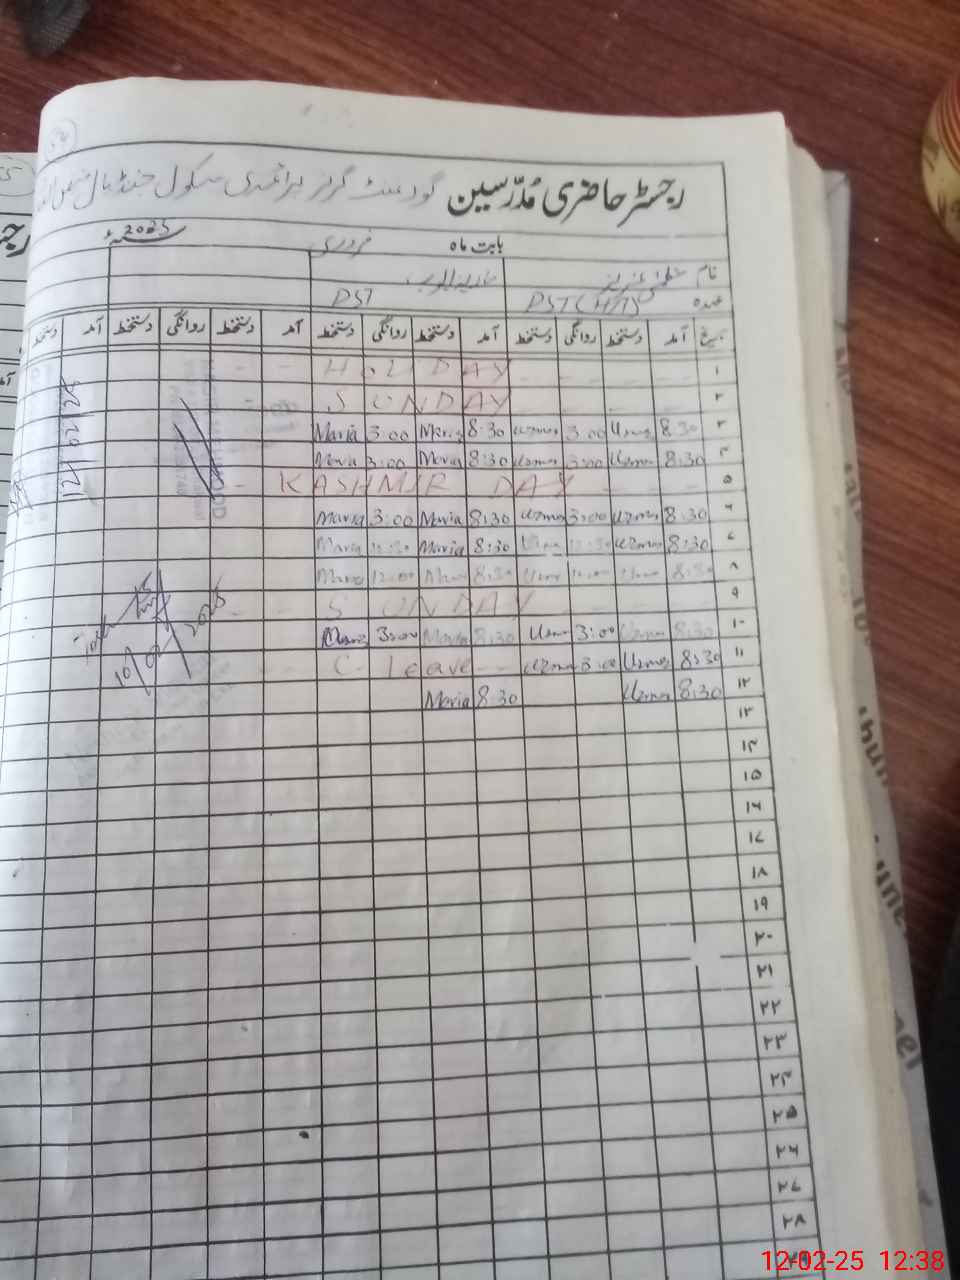 رجسٹر حاضری مُدرّسین گورنمنٹ گرلز پرائمری سکول جنڈیال
بابت ماہ فروری 2025ء
نام عظمیٰ عزیز ماریہ ایوب
عہدہ PST (H/T) PST
تاریخ آمد دستخط روانگی دستخط آمد دستخط روانگی دستخط آمد دستخط روانگی دستخط آمد دستخط
۱ HOLI DAY
۲ SUNDAY
۳ 8:30 Uzma 3:00 Uzma 8:30 Maria 3:00 Maria
۴ 8:30 Uzma 3:00 Uzma 8:30 Maria 3:00 Maria
۵ KASHMIR DAY
۶ 8:30 Uzma 3:00 Uzma 8:30 Maria 3:00 Maria
۷ 8:30 Uzma 12:30 Uzma 8:30 Maria 12:30 Maria
۸ 8:30 Uzma 12:00 Uzma 8:30 Maria 12:00 Maria
۹ SUNDAY
۱۰ 8:30 Uzma 3:00 Uzma 8:30 Maria 3:00 Maria
۱۱ 8:30 Uzma 3:00 Uzma C- Leave
۱۲ 8:30 Uzma 8:30 Maria
۱۳
۱۴
۱۵
۱۶
۱۷
۱۸
۱۹
۲۰
۲۱
۲۲
۲۳
۲۴
۲۵
۲۶
۲۷
۲۸
۲۹
12-02-25 12:38